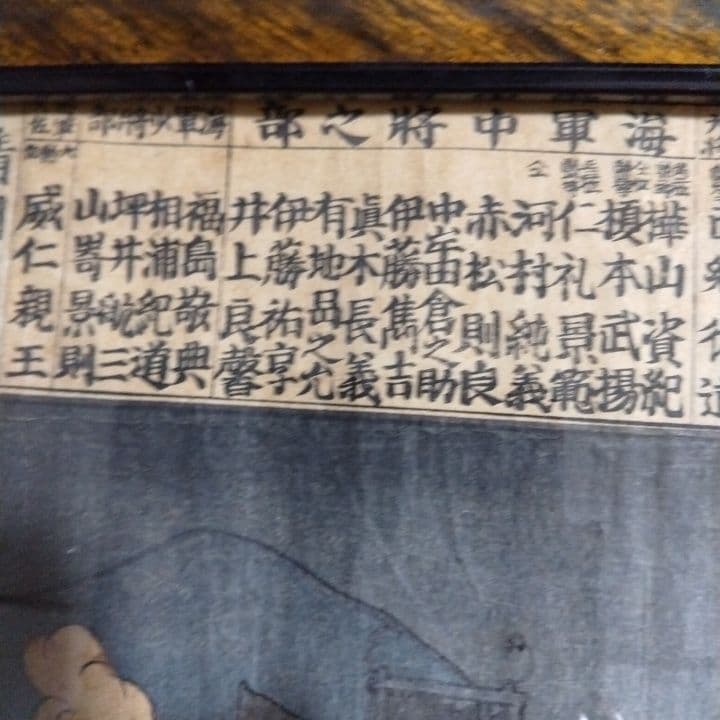 海軍中將之部
樺山資紀
榎本武揚
仁礼景範
河村純義
赤松則良
中牟田倉之助
伊藤雋吉
眞木長義
有地品之允
伊藤祐亨
井上良馨
海軍少將部
福島敬典
相浦紀道
坪井航三
山嵜景則
威仁親王